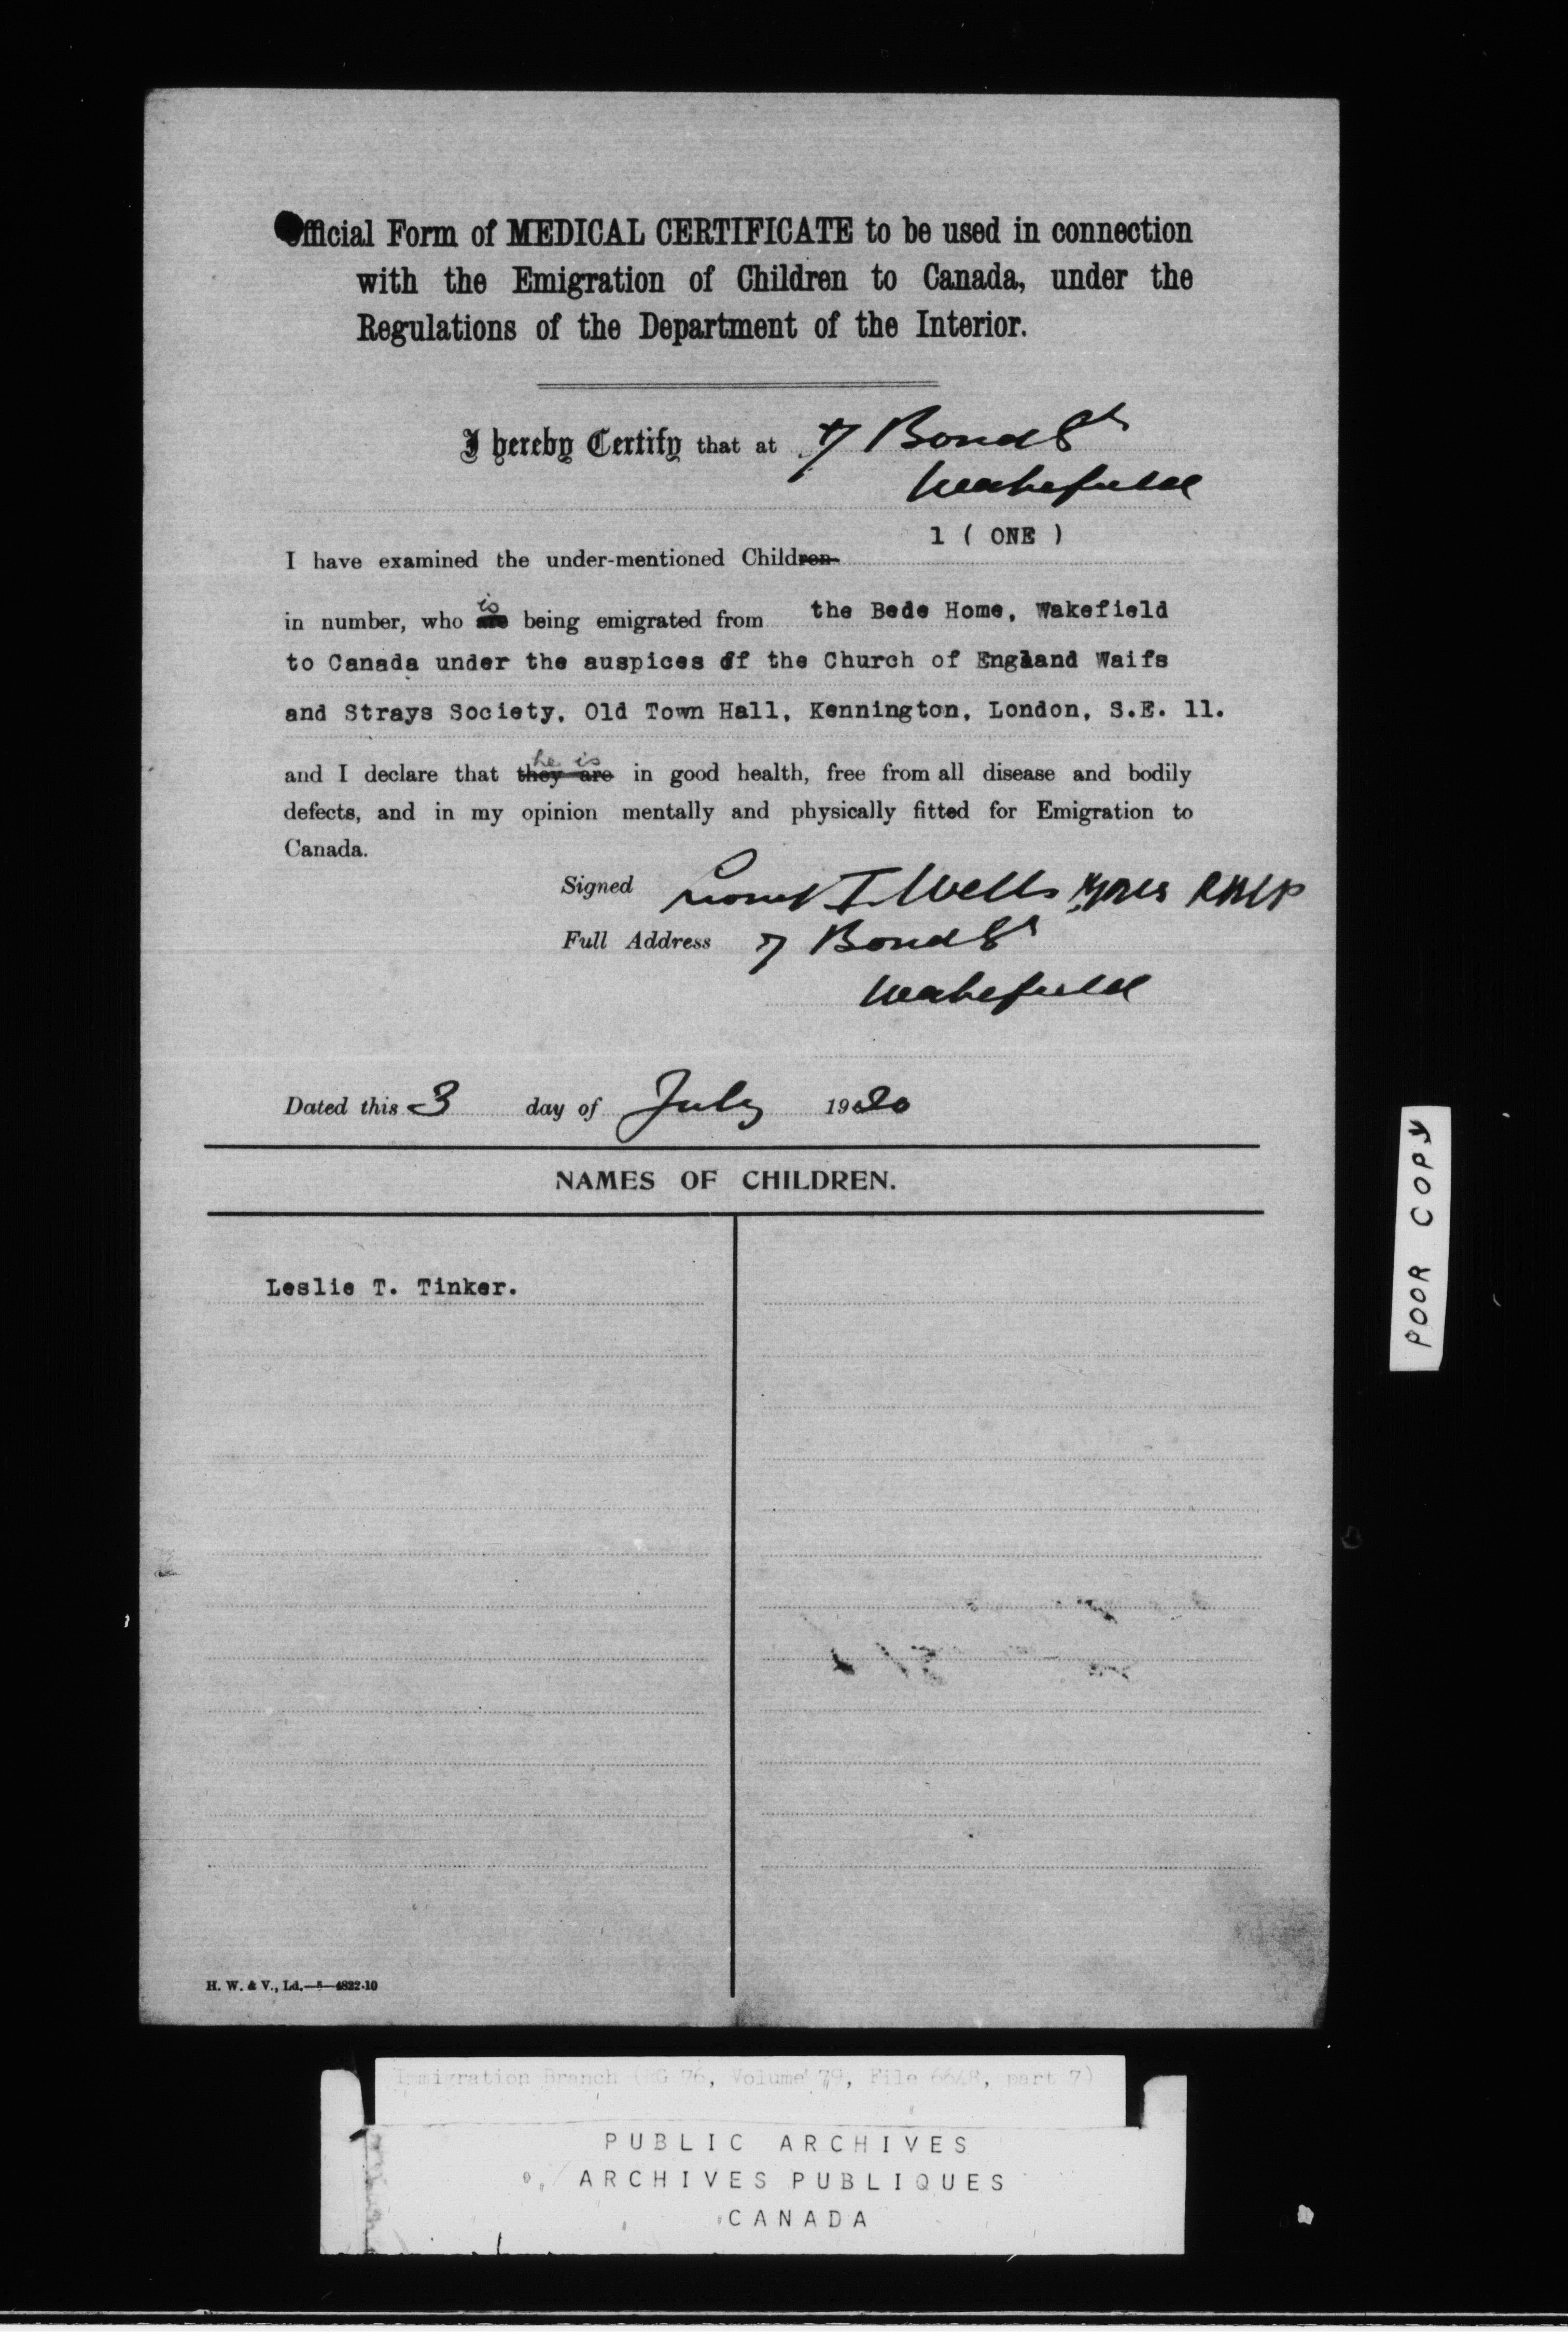 Official Form of MEDICAL CERTIFICATE to be used in connection
with the Emigration of Children to Canada, under the
Regulations of the Department of the Interior.
I hereby Certify that at 7 Bond St
Wakefield
1 ( ONE )
I have examined the under-mentioned Children
is
in number, who are being emigrated from the Bede Home, Wakefield
to Canada under the auspices of the Church of England Waifs
and Strays Society, Old Town Hall, Kennington, London, S.E. 11.
he is
and I declare that they are in good health, free from all disease and bodily
defects, and in my opinion mentally and physically fitted for Emigration to
Canada.
Signed Lionel I. Wells
Full Address 7 Bond St
Wakefield
Dated this 3 day of July 1920
NAMES OF CHILDREN.
Leslie T. Tinker.
H. W. & V., Ld.—5—4822-10
POOR COPY
Immigration Branch (RG 76, Volume 79, File 6648, part 7)
PUBLIC ARCHIVES
ARCHIVES PUBLIQUES
CANADA